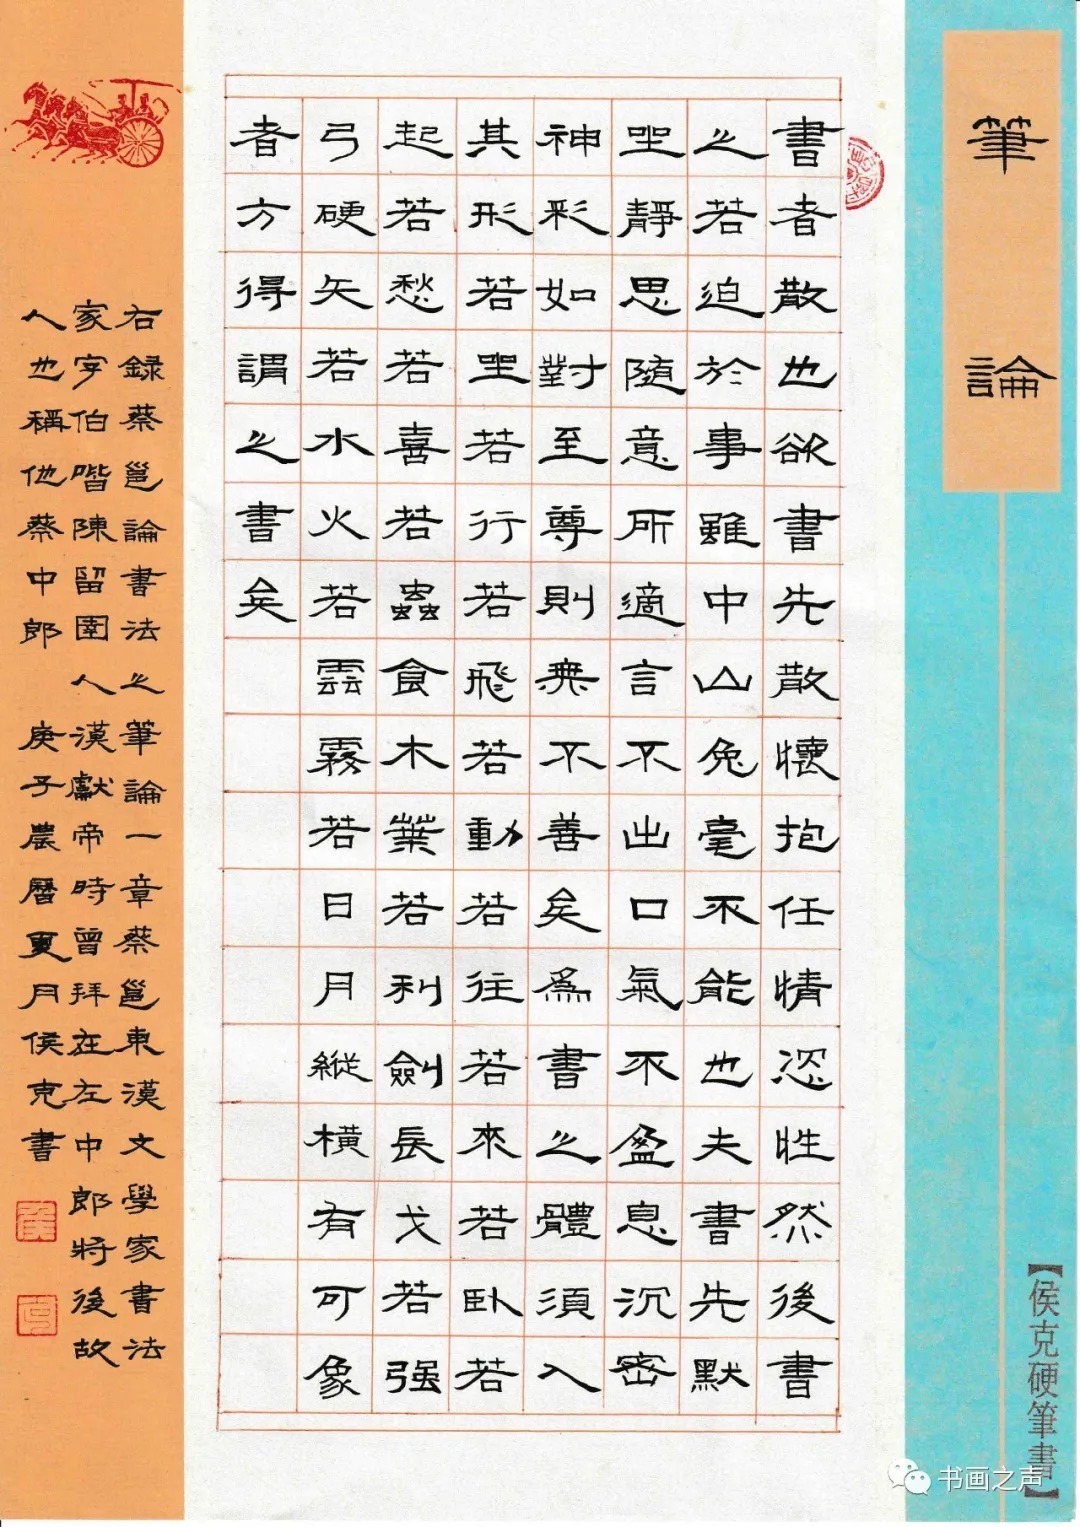 筆論
書者散也欲書先散懷抱任情恣性然後書
之若迫於事雖中山兔毫不能也夫書先默
坐靜思隨意所適言不出口氣不盈息沉密
神彩如對至尊則無不善矣為書之體須入
其形若坐若行若飛若動若往若來若臥若
起若愁若喜若蟲食木葉若利劍長戈若强
弓硬矢若水火若雲霧若日月縱橫有可象
者方得謂之書矣
右録蔡邕論書法之筆論一章蔡邕東漢文學家書法
家字伯喈陳留圉人漢獻帝時曾拜在左中郎將後故
人也稱他蔡中郎 庚子農曆夏月侯克書
【侯克硬筆書】
书画之声